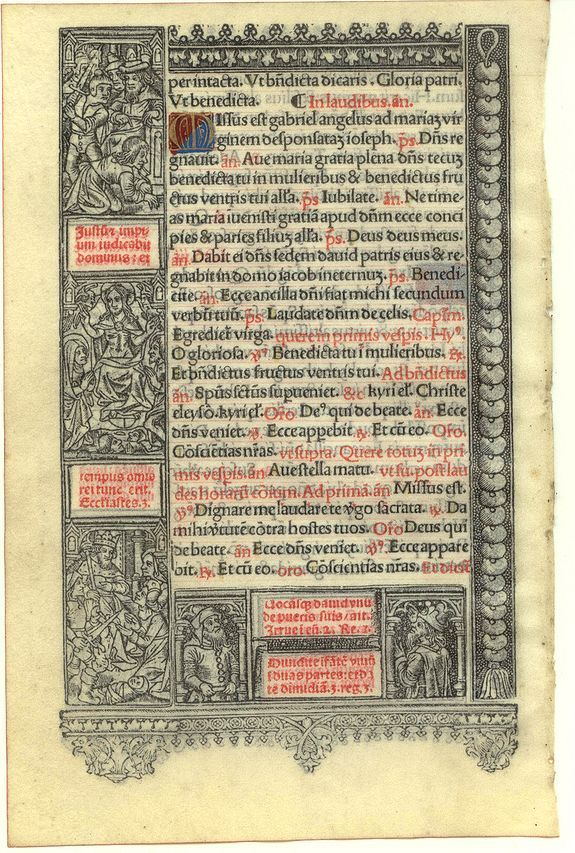 per intacta. Vt bñdicta dicaris. Gloria patri.
Vt benedicta. ¶ In laudibus. añ.
Missus est gabriel angelus ad mariaʒ vir
ginem desponsataʒ ioseph. p̄s. Dñs re
gnauit. añ. Aue maria gratia plena dñs tecuʒ
benedicta tu in mulieribus & benedictus fru
ctus ventris tui alľa. p̄s Iubilate. añ. Ne time-
as maria iuenisti gratiā apud dñm ecce conci
pies & paries filiuʒ alľa. p̄s. Deus deus meus.
añ. Dabit ei dñs sedem dauid patris eius & re-
gnabit in domo iacob ineternuʒ. p̄s. Benedi-
cite. añ. Ecce ancilla dñi fiat michi secundum
verbū tuū. p̄s. Laudate dñm de celis. Capľm.
Egrediet̃ virga. quere in primis vesp̄is. Hyꝰ.
O gloriosa. ꝟꝰ. Benedicta tu ī mulieribus. ꝶ.
Et bñdictus fructus ventris tui. Ad bñdictus
añ. Spūs sctūs supueniet. &c kyrieľ. Christe
eleysō. kyrieľ. Oro. Deꝰ qui de beate. añ. Ecce
dñs veniet. ꝟ. Ecce apparebit. ꝶ. Et cū eo. Oro.
Cōsciētias nr̄as. vt supra. Quere totuʒ in pri
mis vesp̄is. añ. Aue stella matu. vt su. post lau
des horarū cōium. Ad primā. añ Missus est.
ꝟꝰ. Dignare me laudare te ꝟgo sacrata. ꝶ. Da
mihi v̄tutē cōtra hostes tuos. Oro Deus qui
de beate. añ Ecce dñs veniet. ꝟꝰ. Ecce appare
bit. ꝶ. Et cū eo. oro. Cōscientias nr̄as. Et dicit̃
Justuʒ impi
um iudicabit
dominus: et
tempus omīs
rei tunc erit.
Ecclīastes. 3.
Uocasq̄ʒ dauid vnū
de pueris suis / ait.
Irrue ī eū. 2. Re. 1.
Diuidite ifātē viuū
ī duas partes: et d
te dimidiā. 3. reg. 3.